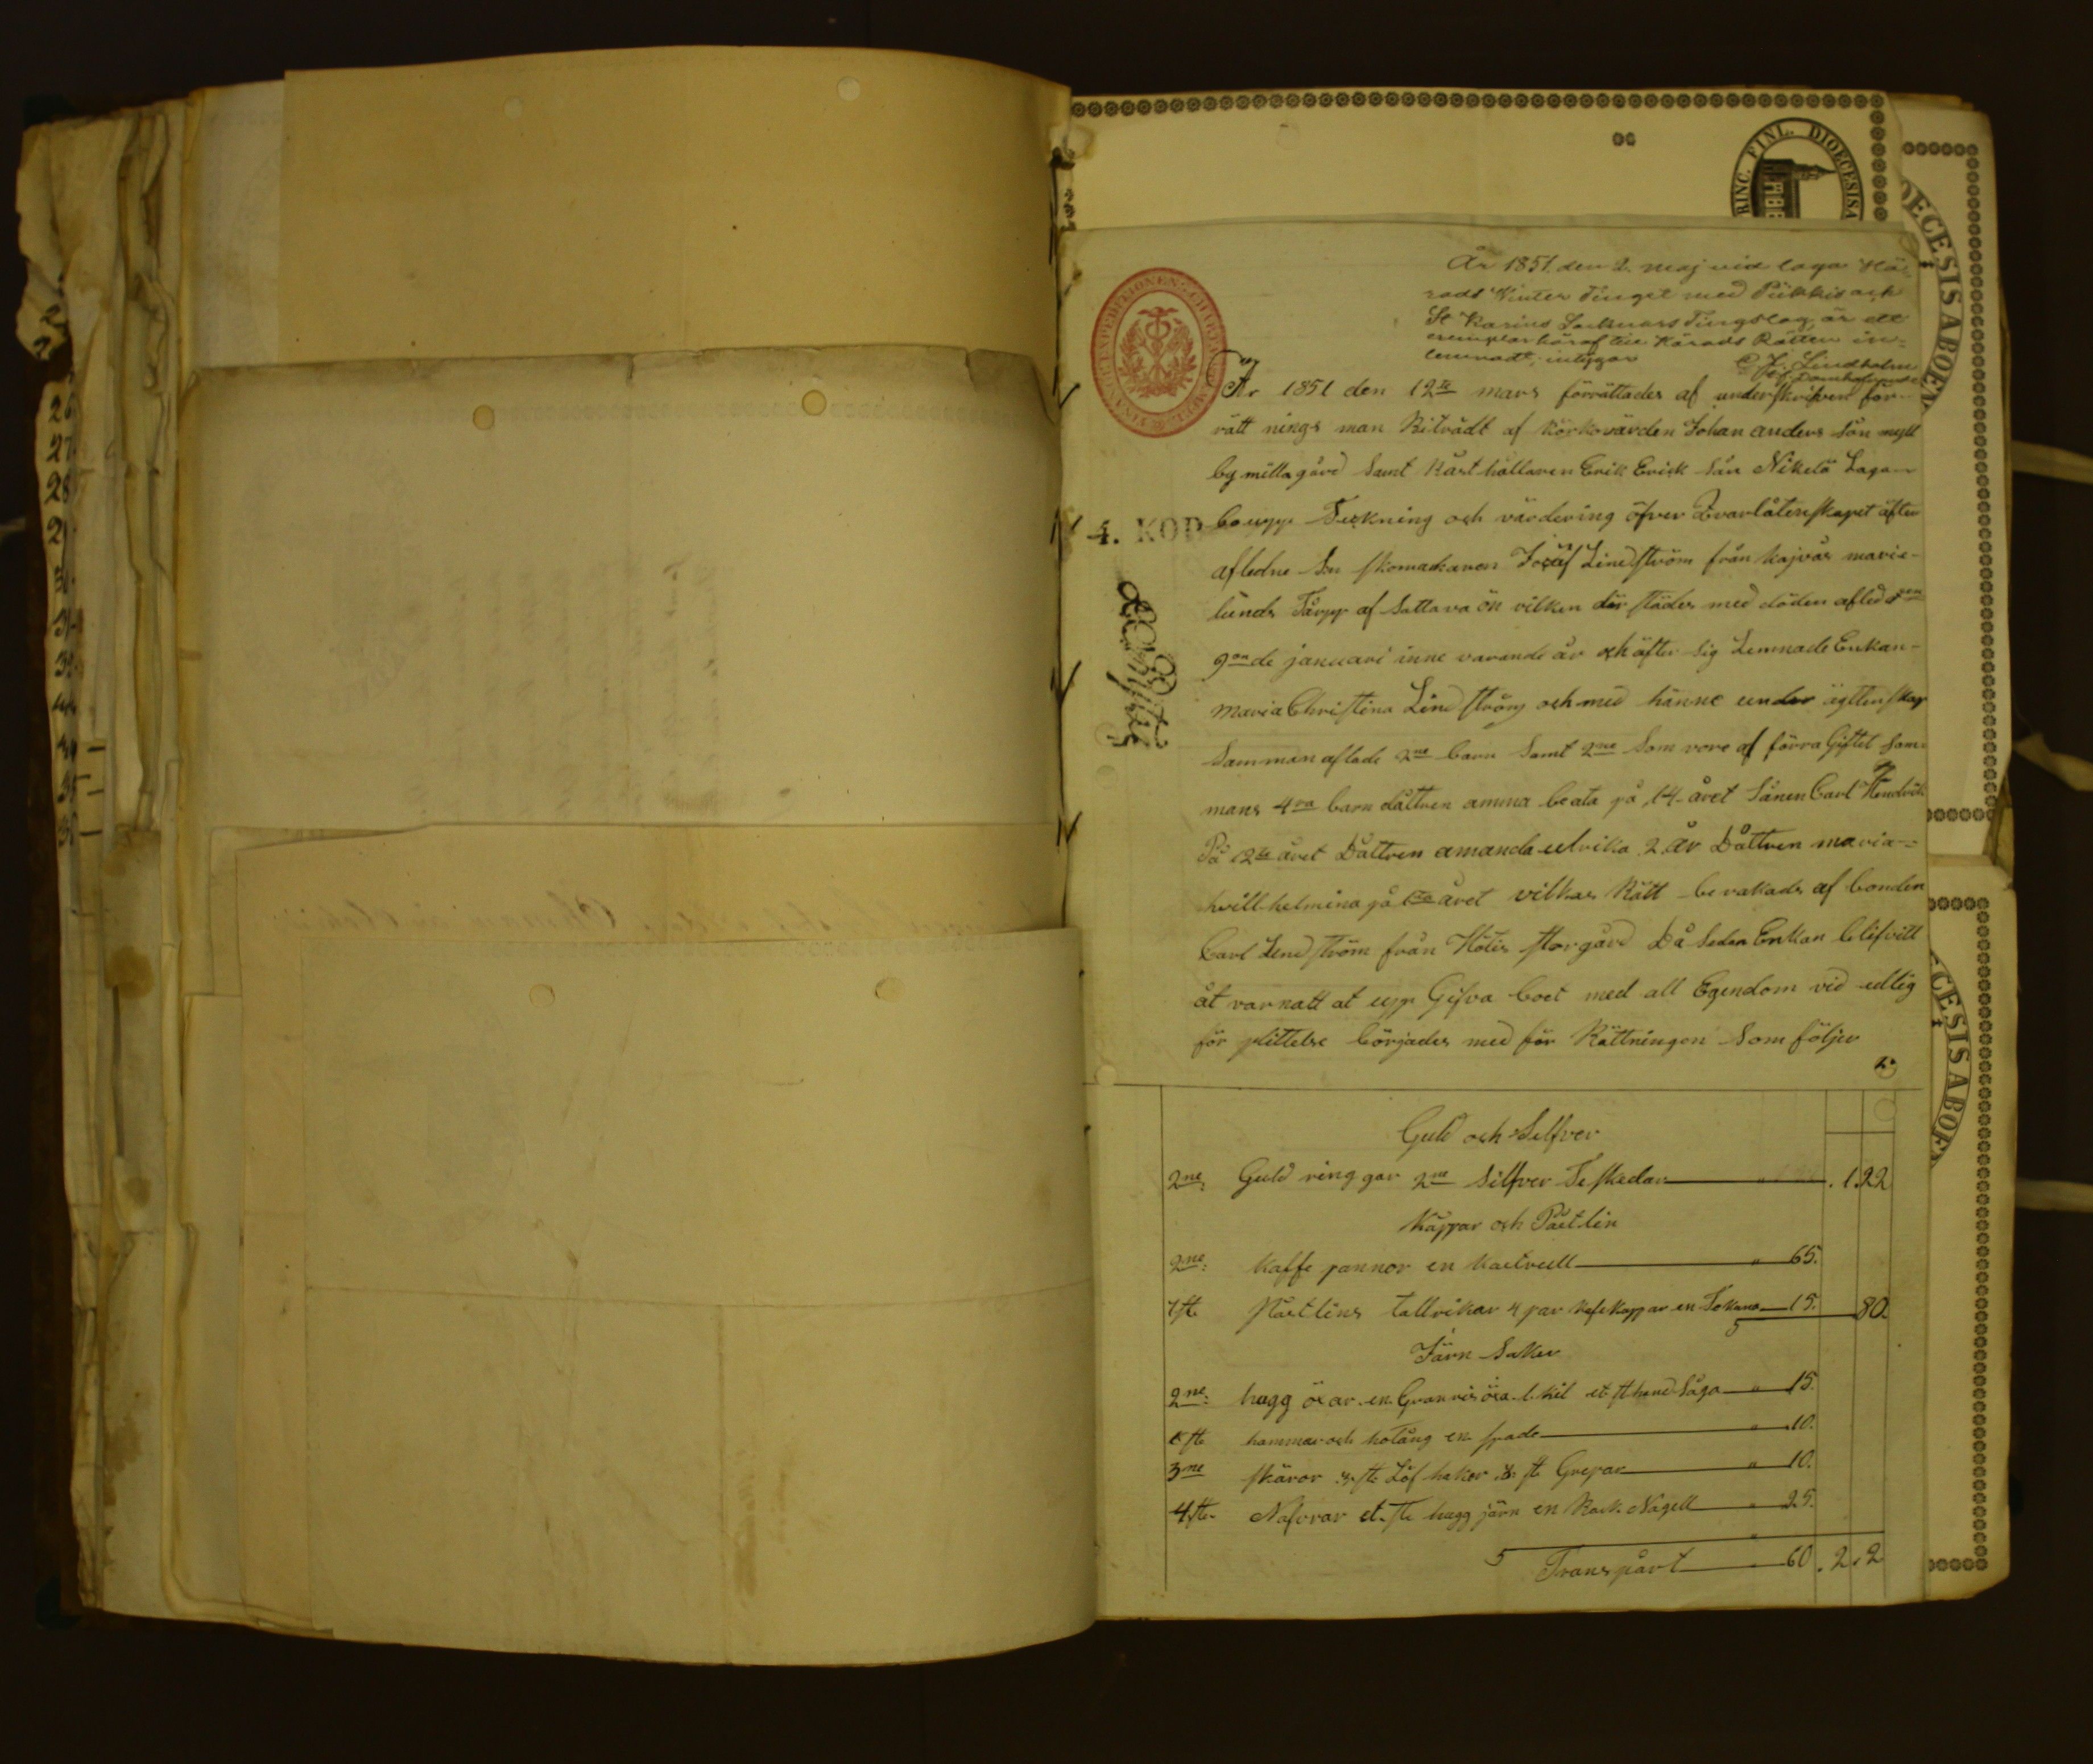 År 1851. den 2. Maj vid laga Hä-
rads Winter Tinget med Piikkis och
St Karins Socknars Tingslag, är ett
exemplar häraf till Härads Rätten in-
lemnadt; intygar C. J. Lindholm
År 1851 den 12te mars förrättades af underskrifven för-
rätt nings man Bitrådt af körkovärden Johan anders sån
by mitta gård Samt Råst hållaren Erik Erick sån Niketö Lagan
bo upp Teckning och värdering öfver Qvarlåtenskapet äfter
afledne skomackaren Josäf Lindström från Kajvås marie-
lunds Tårpp af Sattava ön vilken där städes med döden afled den
9onde januari inne varande år och äfter sig Lemnade Enkan-
maria Christina Lindström och med hänne under ägttenskap
Samman aflade 2ne barn Samt 2ne Som vore af förra Giftet Som-
mans 4ra barn dåttren amma beata på 14-året Sånen Carl Hendrik
På 12te året Dåttren amanda ulrika 2 år Dåttren maria-
hvillhelmina på året vilkas Rätt bevakads af bonden
Carl Lindström från Hötis storgård Då Sedan Enkan blifvitt
åt varnatt at upp Gifva boet med all Egendom vid edlig
för plittelse börjades med för Rättningen Som följer
4. KOP
Guld och Silfver
2ne Guld ring gar 2ne Silfver Te skedar . 1.22
Kåppar och Påstlin
2ne: Kaffe pannor en Kastrull " 65.
7 st. Påstlins tallrikar 4 par kafekoppar en Tekana 15. 80.
Järn Saker
2ne: hugg öxar en Granris öxa 1 kil et st hand Såga " 15.
st. hammar och hotång en spade " 10.
3ne skäror st. Löf hakor st Grepar " 10.
4 st. Nafvrar et st hugg järn en Nagell " 25.
Transpårt 60 . 2. 2